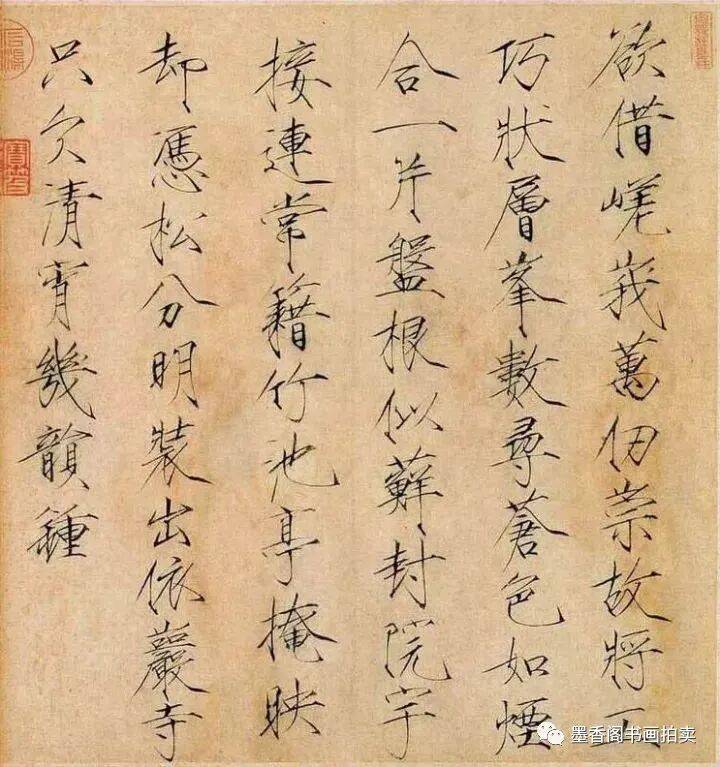 欲借嵯峨萬仞崇故將工
巧狀層峯數尋蒼色如煙
合一片盤根似蘚封院宇
接連常籍竹池亭掩映
却憑松分明裝出依巖寺
只欠清宵幾韻鍾
墨香阁书画拍卖